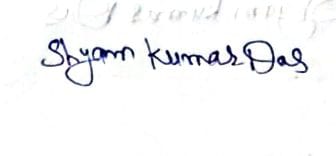 Shyam Kumar Das